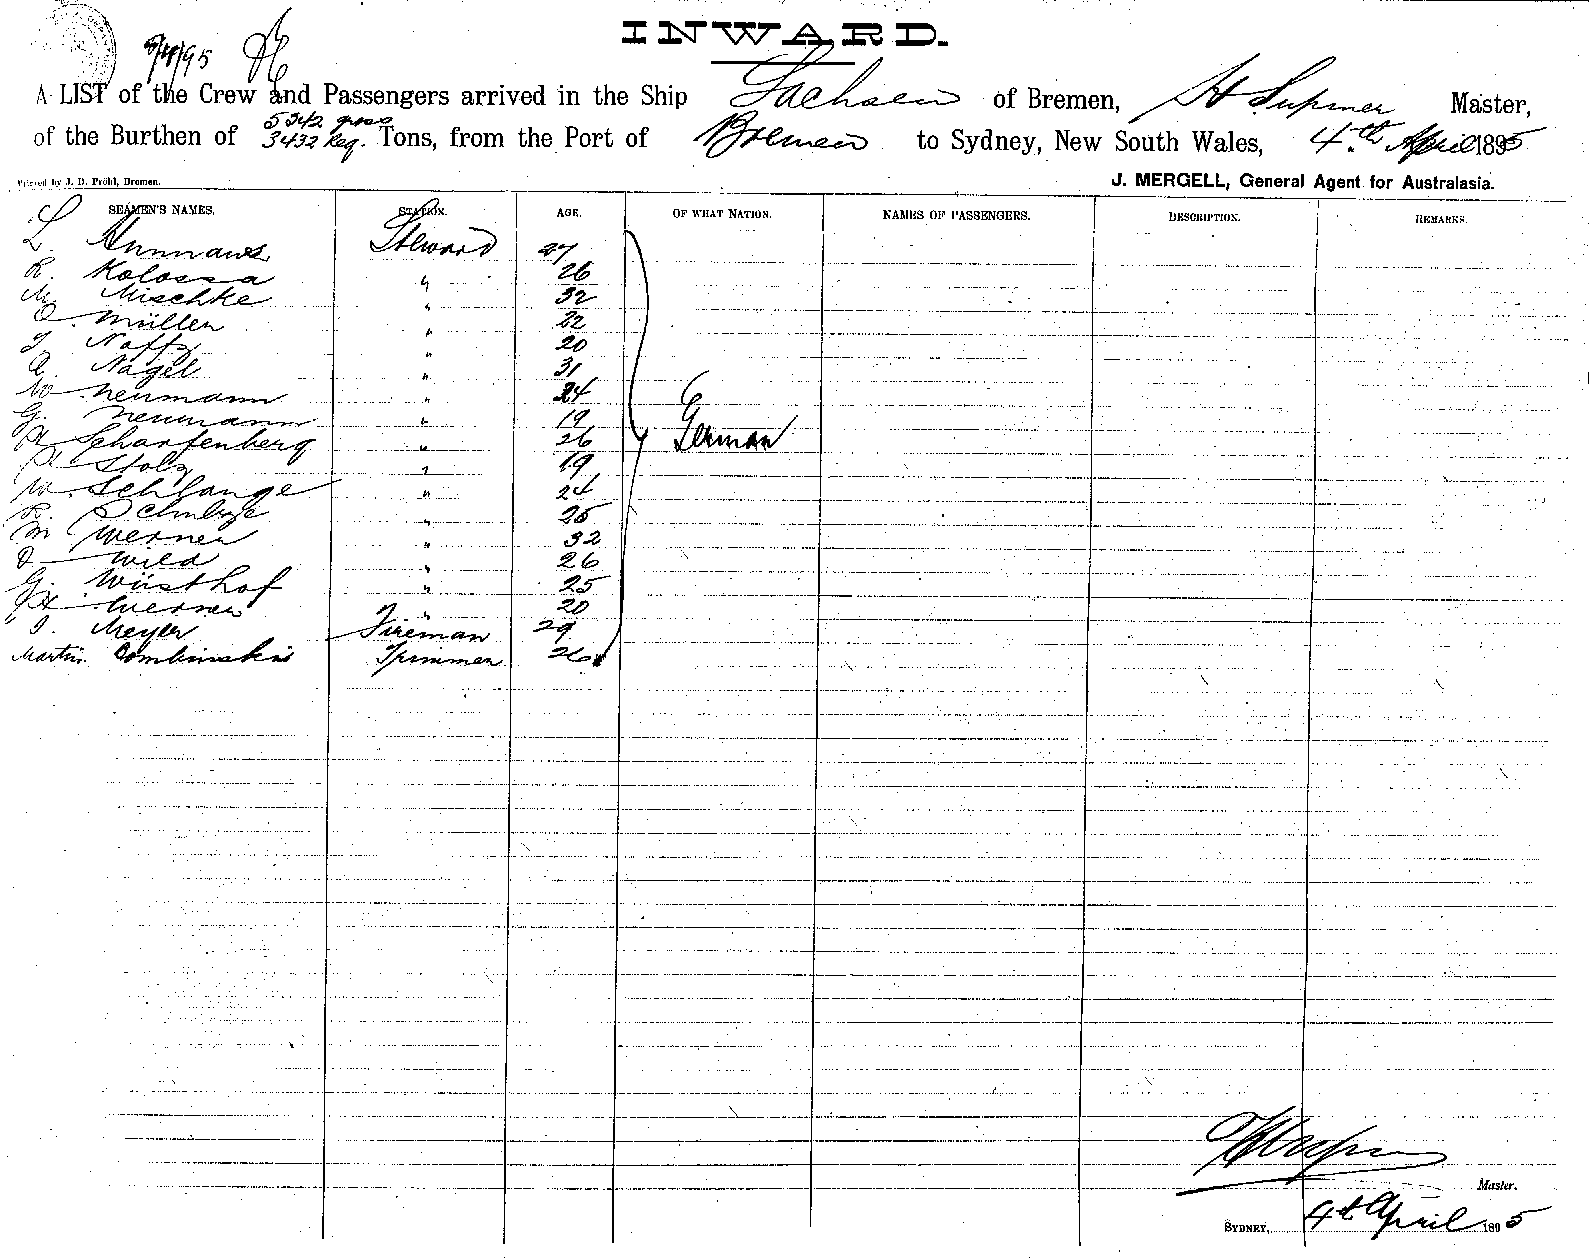 INWARD.
5/4/95
A LIST of the Crew and Passengers arrived in the Ship Sachsen of Bremen, H Supmer Master,
of the Burthen of 5342 gross 3432 Reg. Tons, from the Port of Bremen to Sydney, New South Wales, 4th April 1895
Printed by J. D. Pröhl, Bremen. J. MERGELL, General Agent for Australasia.
SEAMEN'S NAMES. STATION. AGE. OF WHAT NATION. NAMES OF PASSENGERS. DESCRIPTION. REMARKS.
L. Steward 27
R. Kolossa " 26
M. Mischke " 32
O. Müller " 22
" 20
A. Nagel " 31
W. Neumann " 24
G. Neumann " 19
A Scharfenberg " 26 German
A. Stolz " 19
W. Schlange " 24
R. Schulze " 25
M Werner " 32
O Wild " 26
G. Wüsthof " 25
H Werner " 20
J. Meyer Fireman 29
Martin Combinski Trimmer 26
Master.
SYDNEY, 4th April 1895